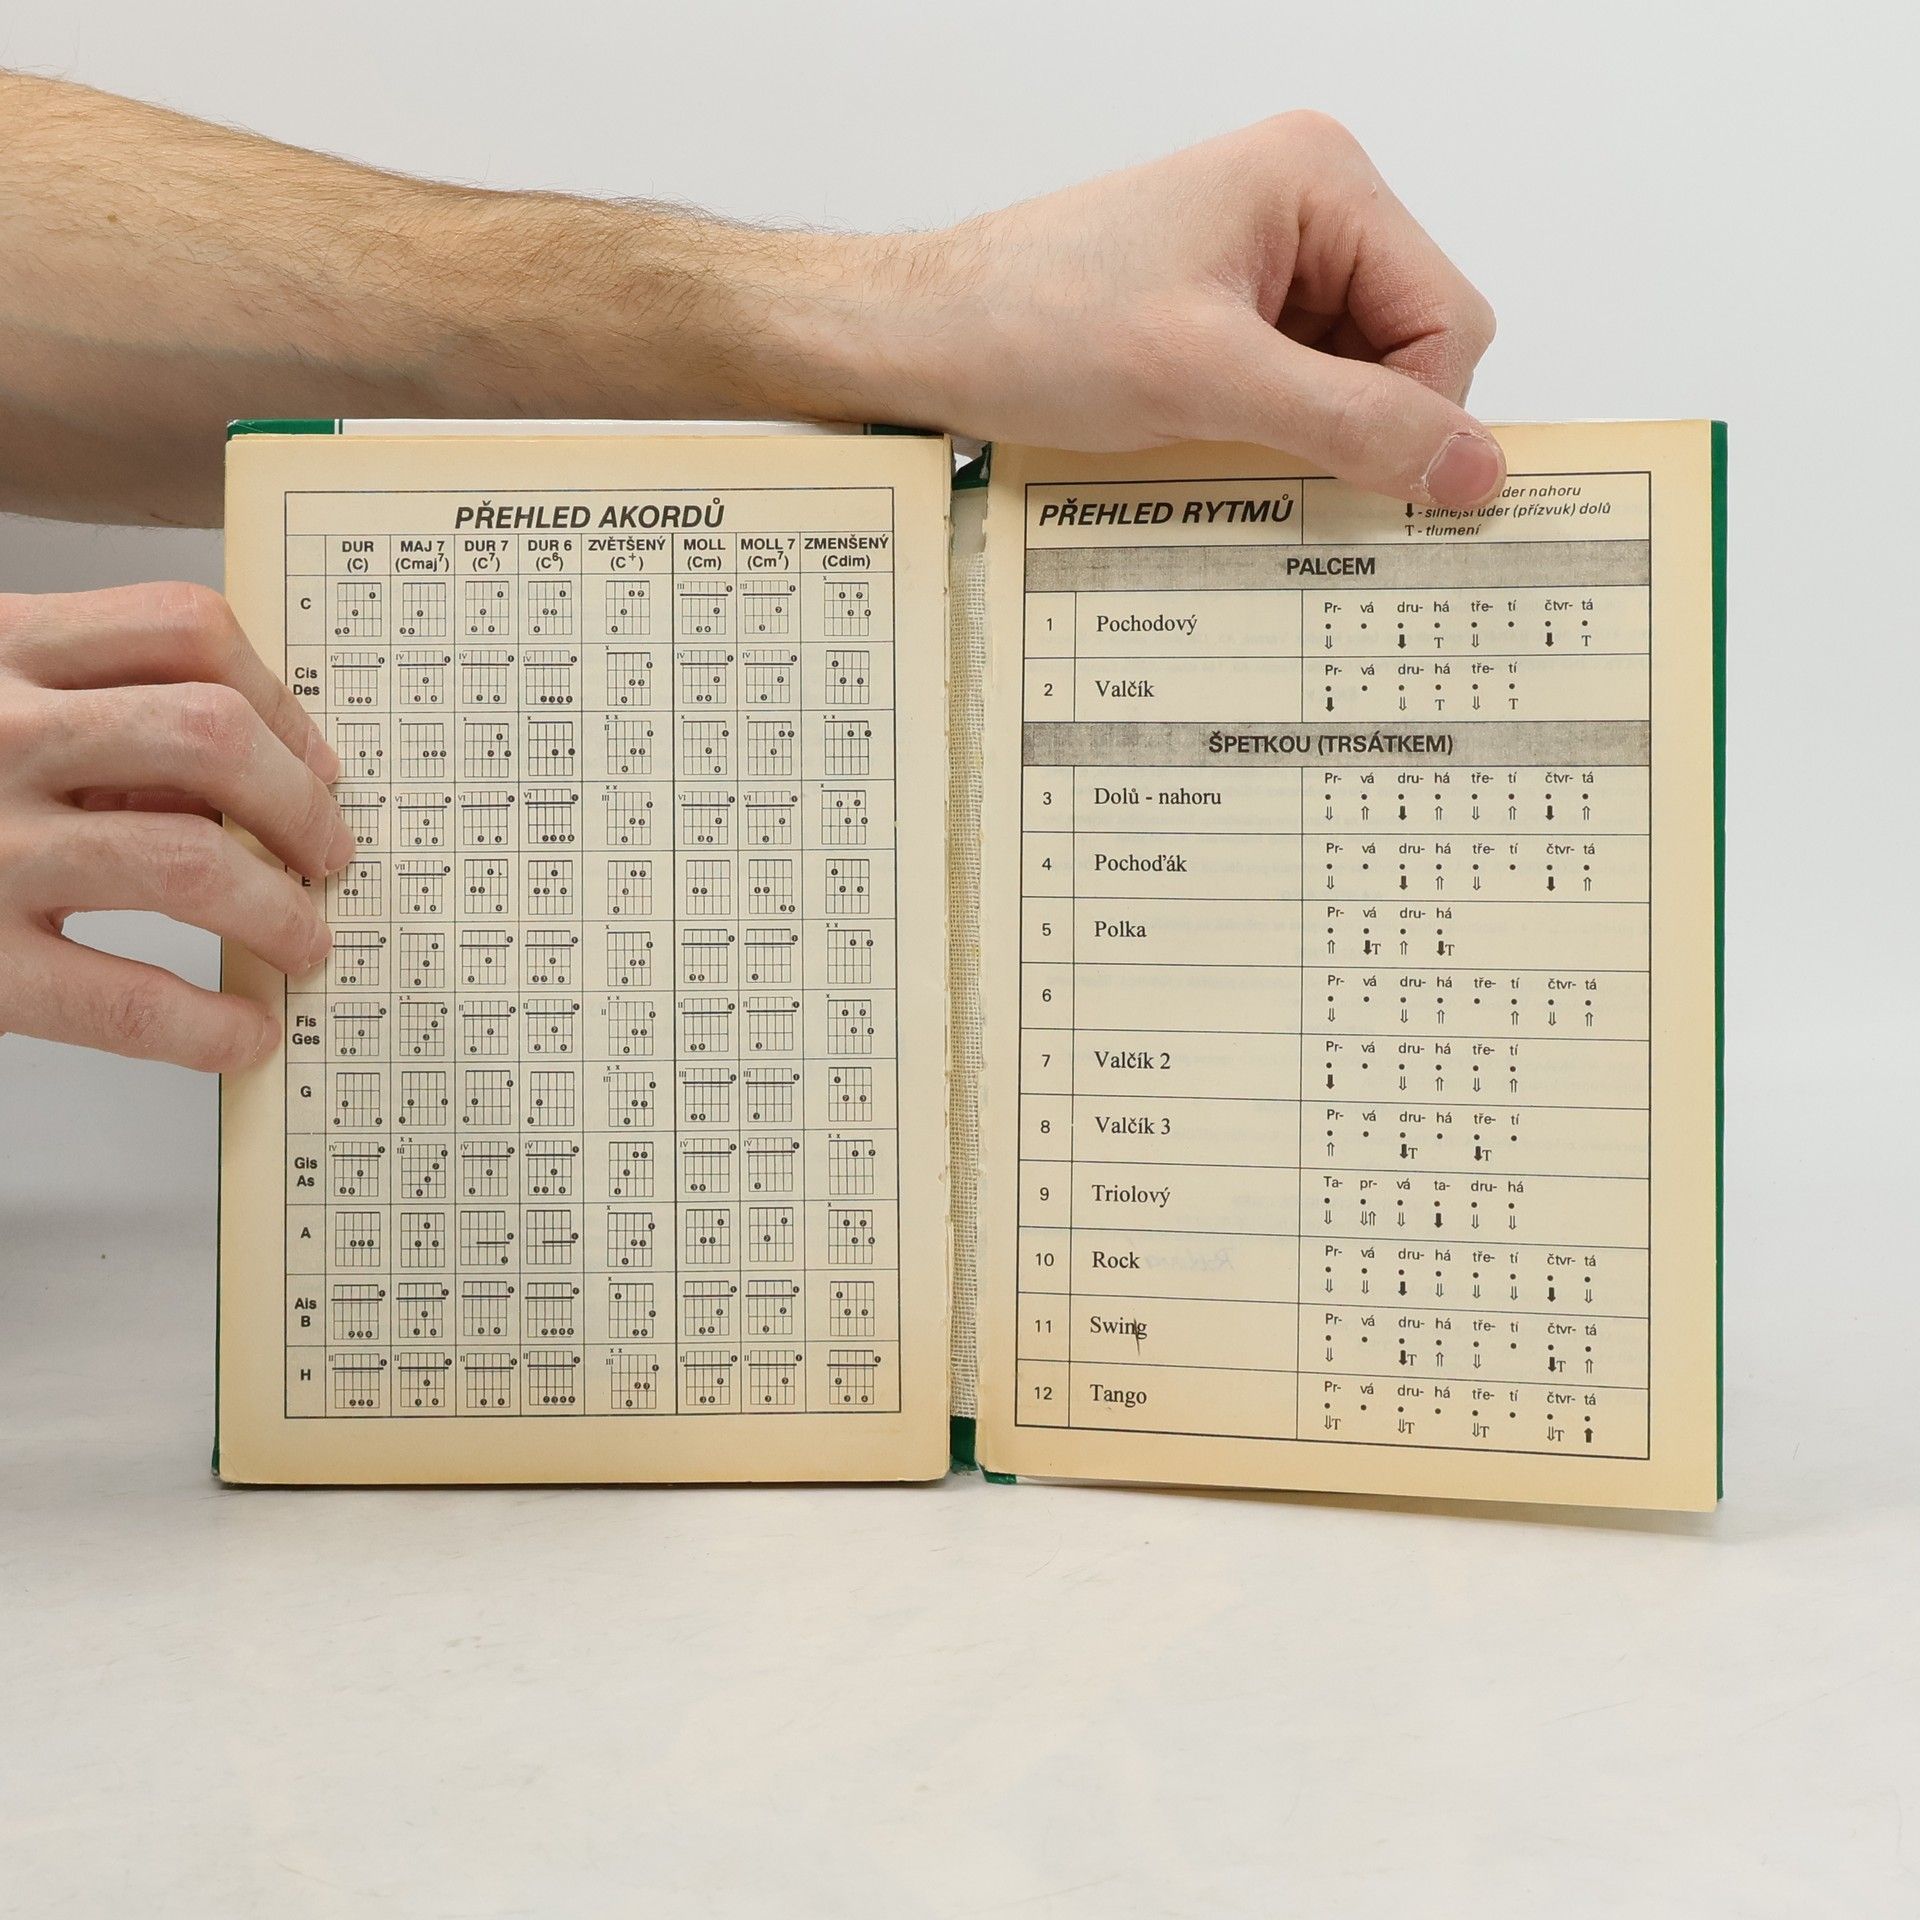 PŘEHLED AKORDŮ
DUR MAJ 7 DUR 7 DUR 6 ZVĚTŠENÝ MOLL MOLL 7 ZMENŠENÝ
(C) (Cmaj7) (C7) (C6) (C+) (Cm) (Cm7) (Cdim)
C
Cis
Des
E
Fis
Ges
G
Gis
As
A
Ais
B
H
PŘEHLED RYTMŮ
nahoru
⬇ - silnejsi úder (přízvuk) dolů
T - tlumení
PALCEM
1 Pochodový Pr- vá dru- há tře- tí čtvr- tá
⇓ ⬇ T ⇓ ⬇ T
2 Valčík Pr- vá dru- há tře- tí
⬇ ⇓ T ⇓ T
ŠPETKOU (TRSÁTKEM)
3 Dolů - nahoru Pr- vá dru- há tře- tí čtvr- tá
⇓ ⇑ ⬇ ⇑ ⇓ ⇑ ⬇ ⇑
4 Pochoďák Pr- vá dru- há tře- tí čtvr- tá
⇓ ⬇ ⇑ ⇓ ⬇ ⇑
5 Polka Pr- vá dru- há
⇑ ⬇T ⇑ ⬇T
6 Pr- vá dru- há tře- tí čtvr- tá
⇓ ⇓ ⇑ ⇑ ⇓ ⇑
7 Valčík 2 Pr- vá dru- há tře- tí
⬇ ⇓ ⇑ ⇓ ⇑
8 Valčík 3 Pr- vá dru- há tře- tí
⇑ ⬇T ⬇T
9 Triolový Ta- pr- vá ta- dru- há
⇓ ⇓⇑ ⇓ ⬇ ⇓ ⇓
10 Rock Pr- vá dru- há tře- tí čtvr- tá
⇓ ⇓ ⬇ ⇓ ⇓ ⇓ ⬇ ⇓
11 Swing Pr- vá dru- há tře- tí čtvr- tá
⇓ ⬇T ⇑ ⇓ ⬇T ⇑
12 Tango Pr- vá dru- há tře- tí čtvr- tá
⇓T ⇓T ⇓T ⇓T ⬆